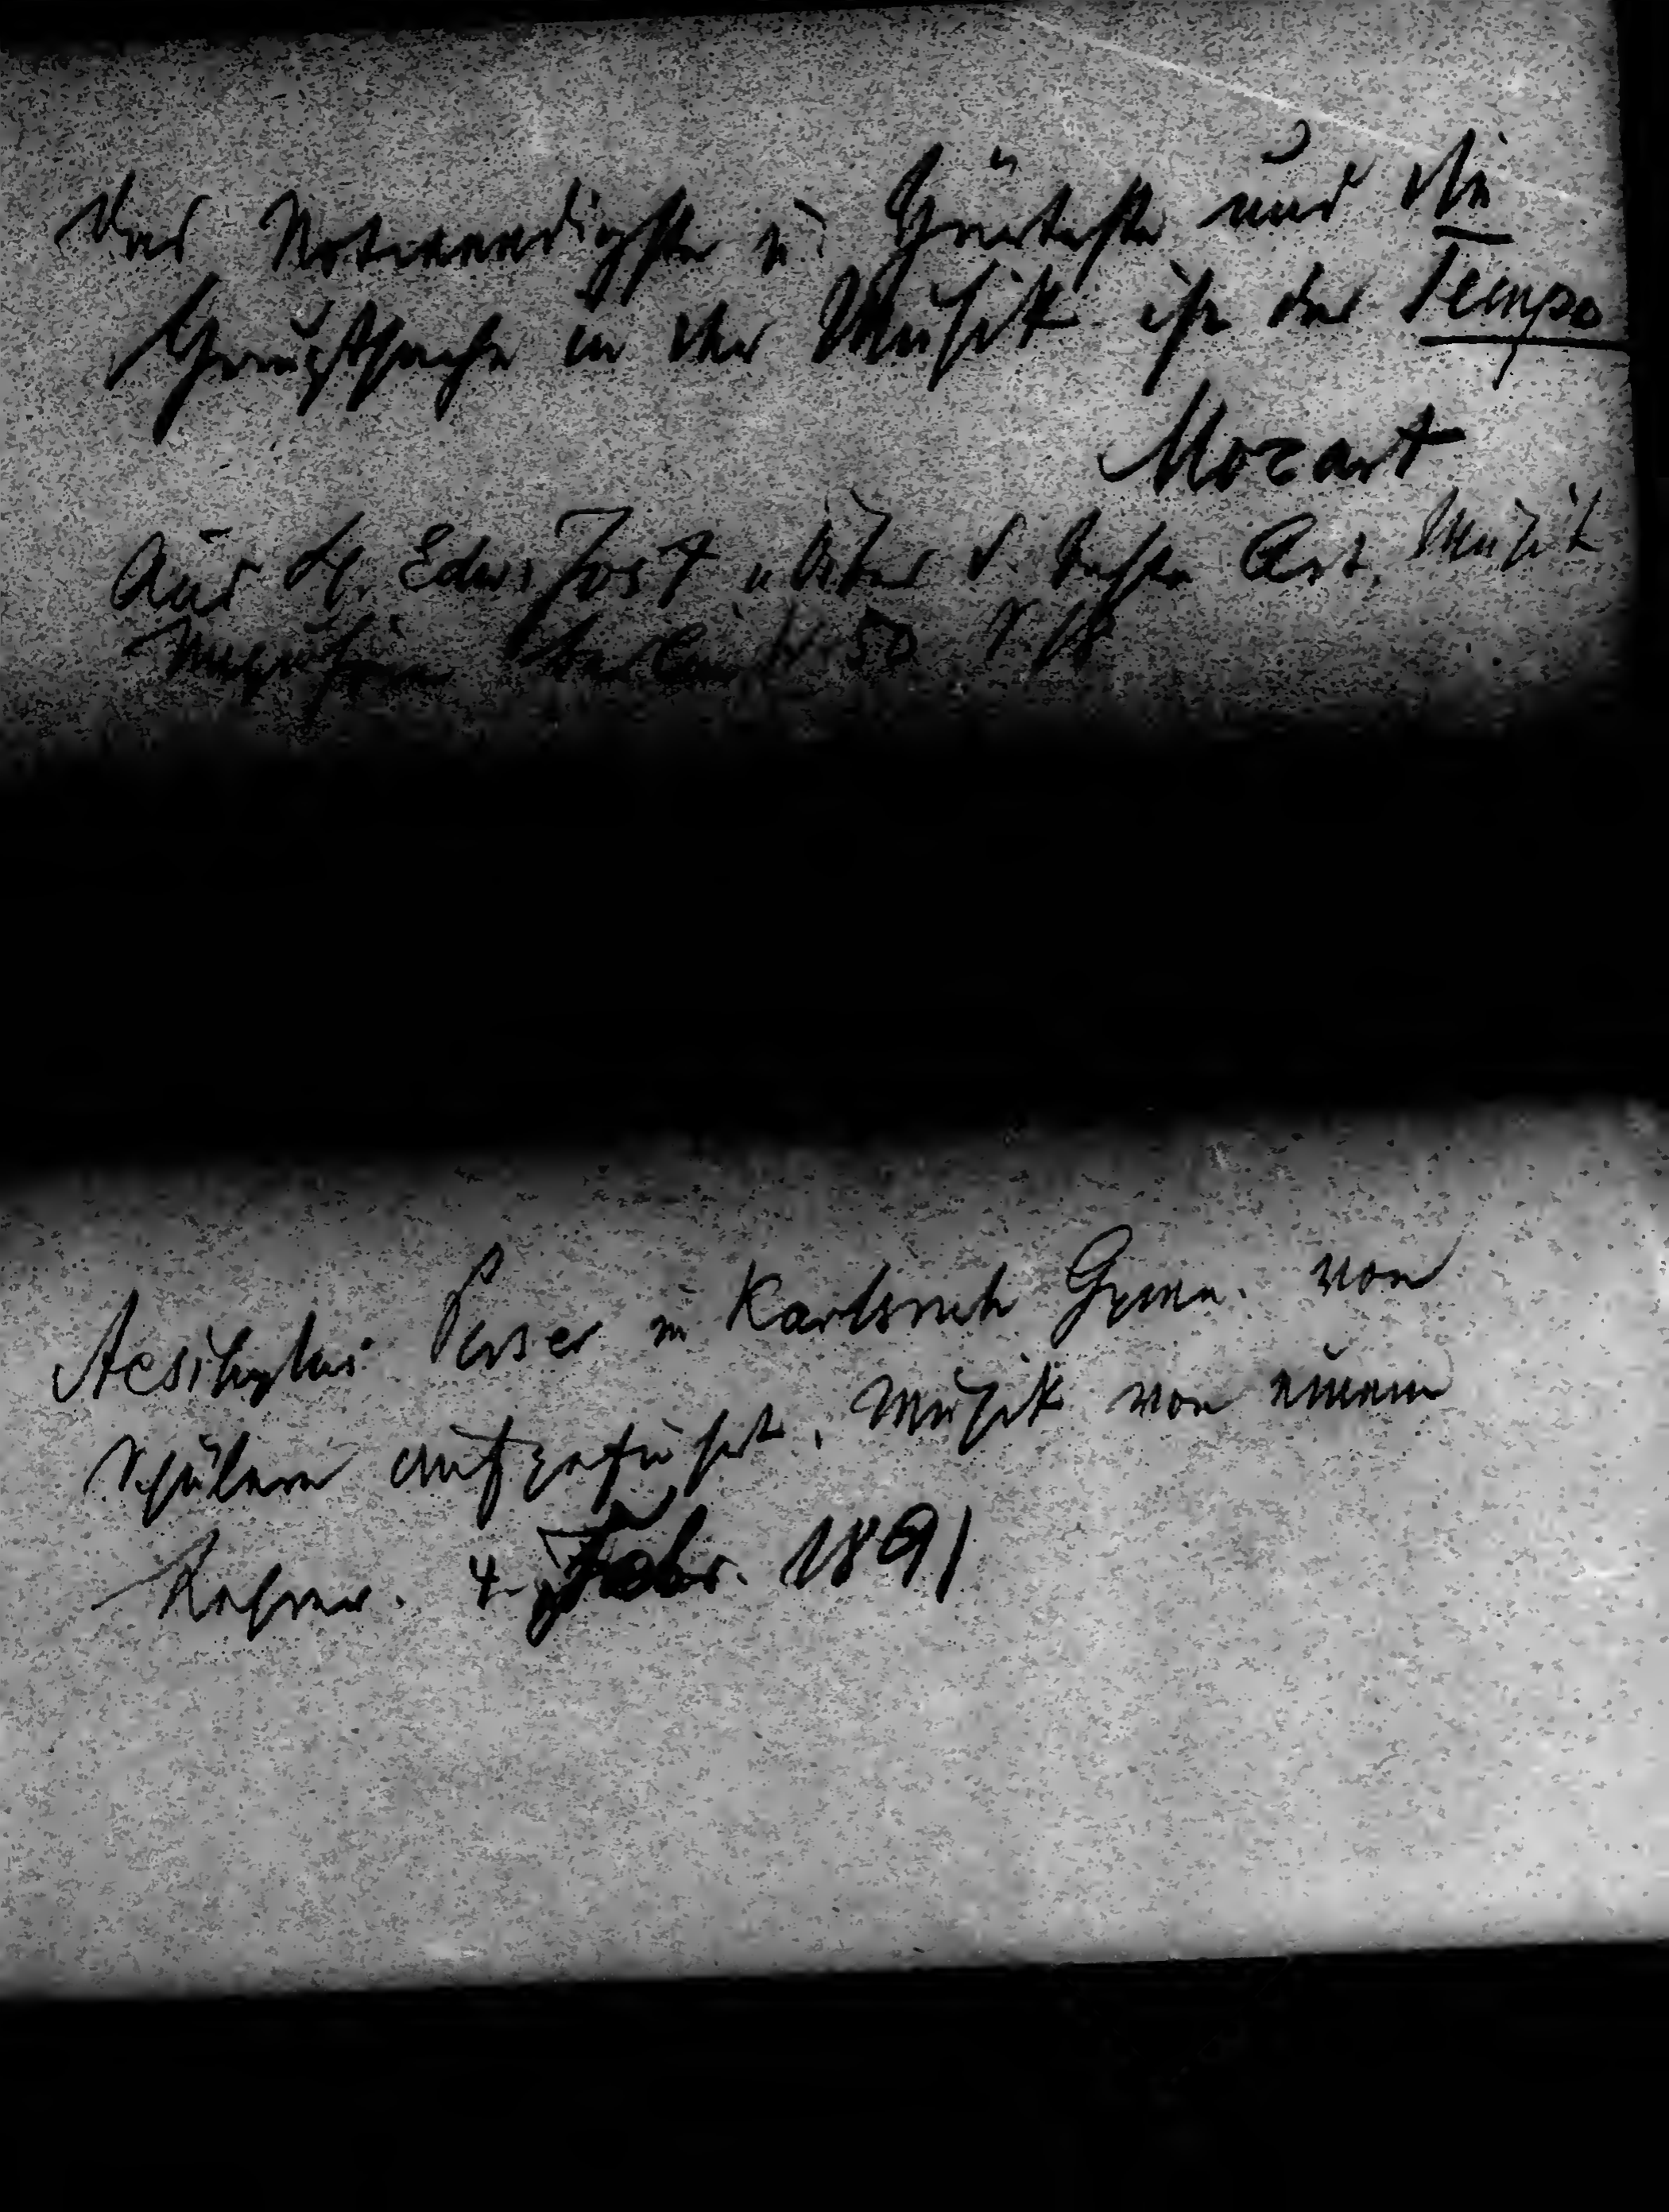 Das Notwendigste u. Härteste und die
Hauptsache in der Musik ist das Tempo
Mozart
Aus Hs. Edw. Jost, über d. beste Art, Musik
Berlin N. 50 S. 18
Aeschylus' Perser in Karlsruh Gymn. von
Schülern aufgeführt, Musik von einem
Lehrer. 4. Febr. 1891